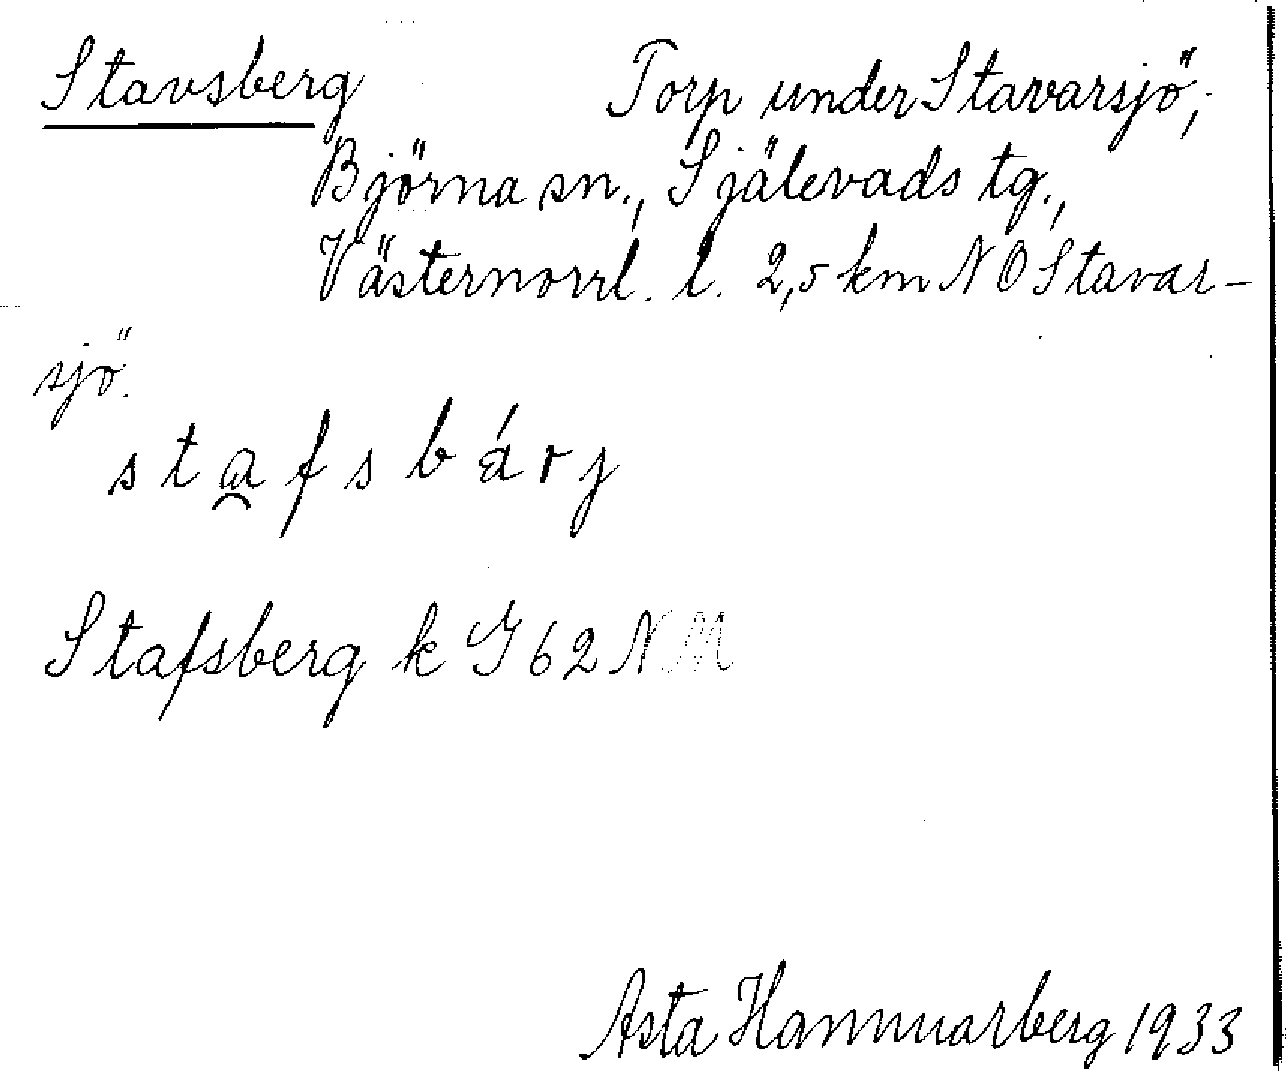 Stavsberg Torp under Stavarsjö,
Björna sn., Själevads tg.,
Västernorrl. l. 2,5 km NO Stavar-
sjö.
stafsbárj
Stafsberg k G 62 NM
Asta Hammarberg 1933